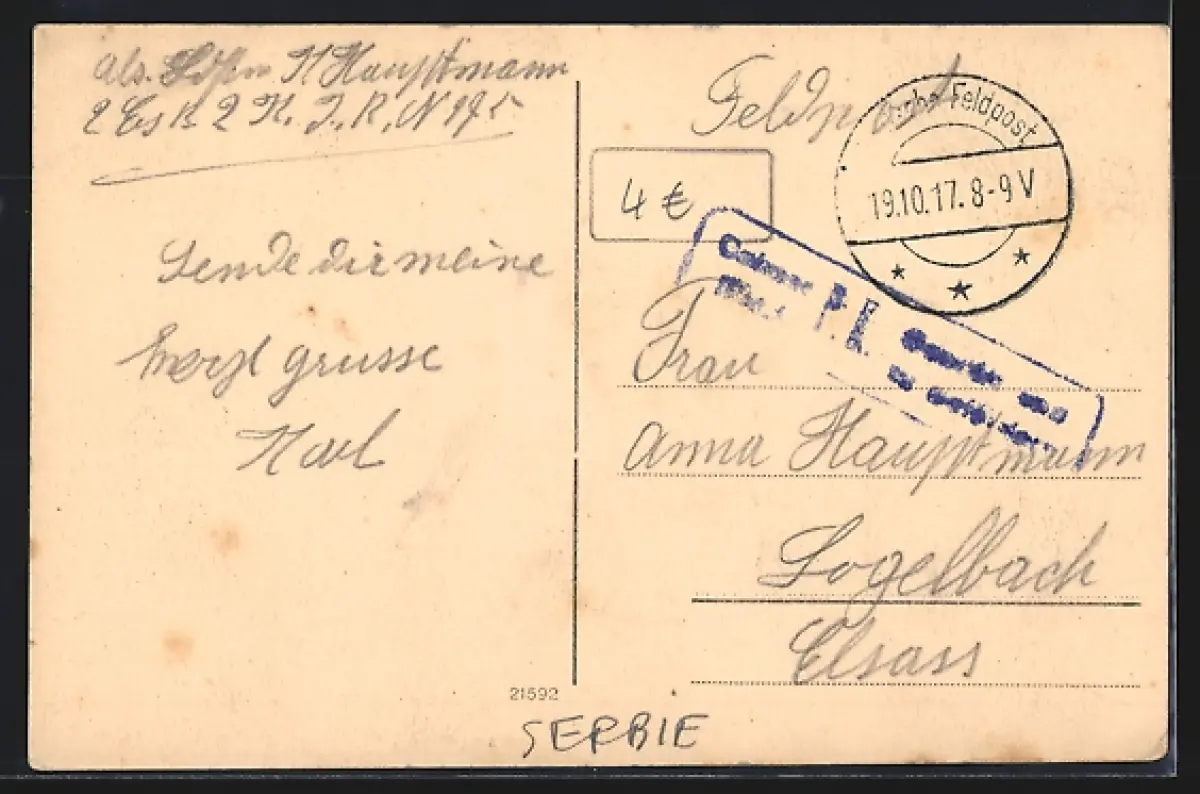 Abs. H Hauptmann
2 Ers B 2 K. I. R. N
Sende dir meine
herzl grusse
Karl
21592
SERBIE
Feldpost
Feldpost
19.10.17. 8-9 V
4 €
Frau
Anna Hauptmann
Logelbach
Elsass